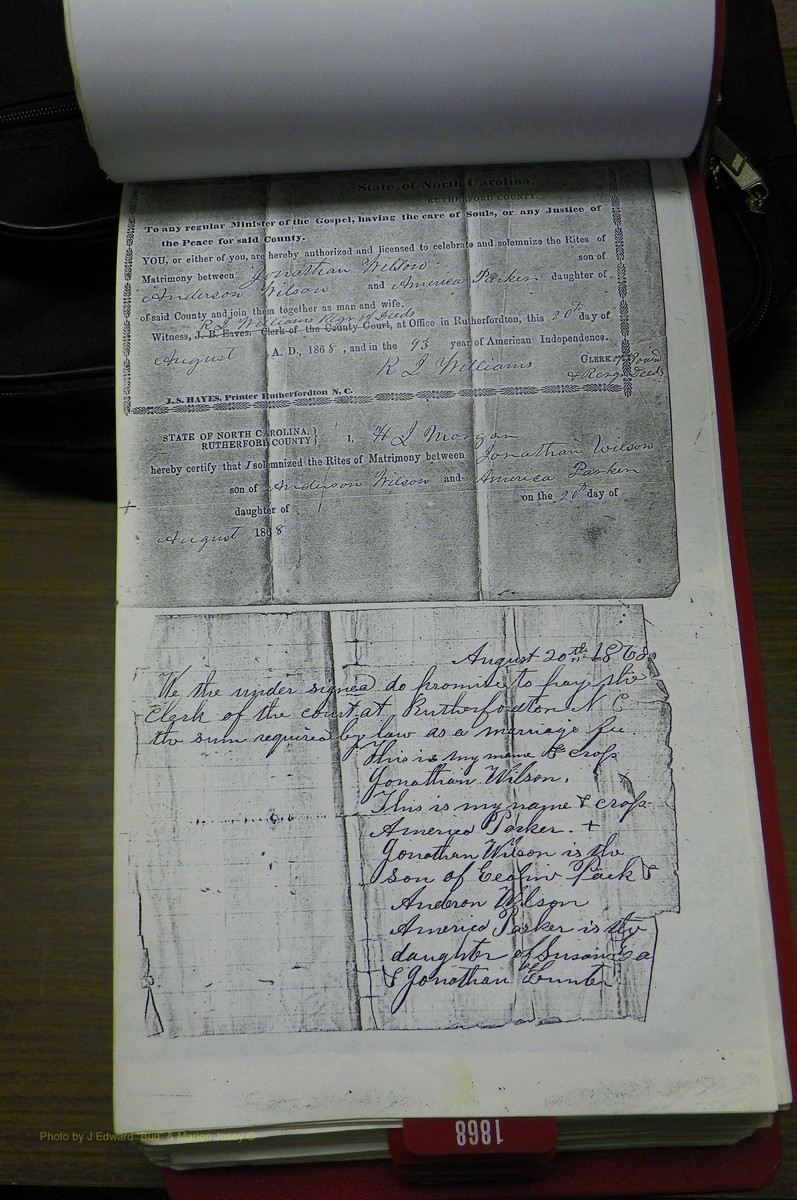 State of North Carolina,
RUTHERFORD COUNTY.
To any regular Minister of the Gospel, having the care of Souls, or any Justice of
the Peace for said County.
YOU, or either of you, are hereby authorized and licensed to celebrate and solemnize the Rites of
Matrimony between Jonathan Wilson son of
Anderson Wilson and America Parker daughter of
of said County and join them together as man and wife.
R J Williams Regr of Deeds
Witness, J. B. Eaves, Clerk of the County Court, at Office in Rutherfordton, this 20th day of
August A. D., 1868, and in the 93 year of American Independence.
R J Williams CLERK of Board
& Regr Deeds
J. S. HAYES, Printer Rutherfordton N. C.
STATE OF NORTH CAROLINA,
RUTHERFORD COUNTY } I, H J Morgan
hereby certify that I solemnized the Rites of Matrimony between Jonathan Wilson
son of Anderson Wilson and America Parker
daughter of on the 20th day of
August 1868
August 20th 1868
We the under signed do promise to pay the
Clerk of the court at Rutherfordton N C
the sum required by law as a marriage fee.
This is my name & crop
Jonathan Wilson.
This is my name & crop
America Parker. +
Jonathan Wilson is the
son of Park &
Anderon Wilson
America Parker is the
daughter of Susan
& Jonathan Hunter
1868
Photo by J Edward "Bud" & Marion Josey ©